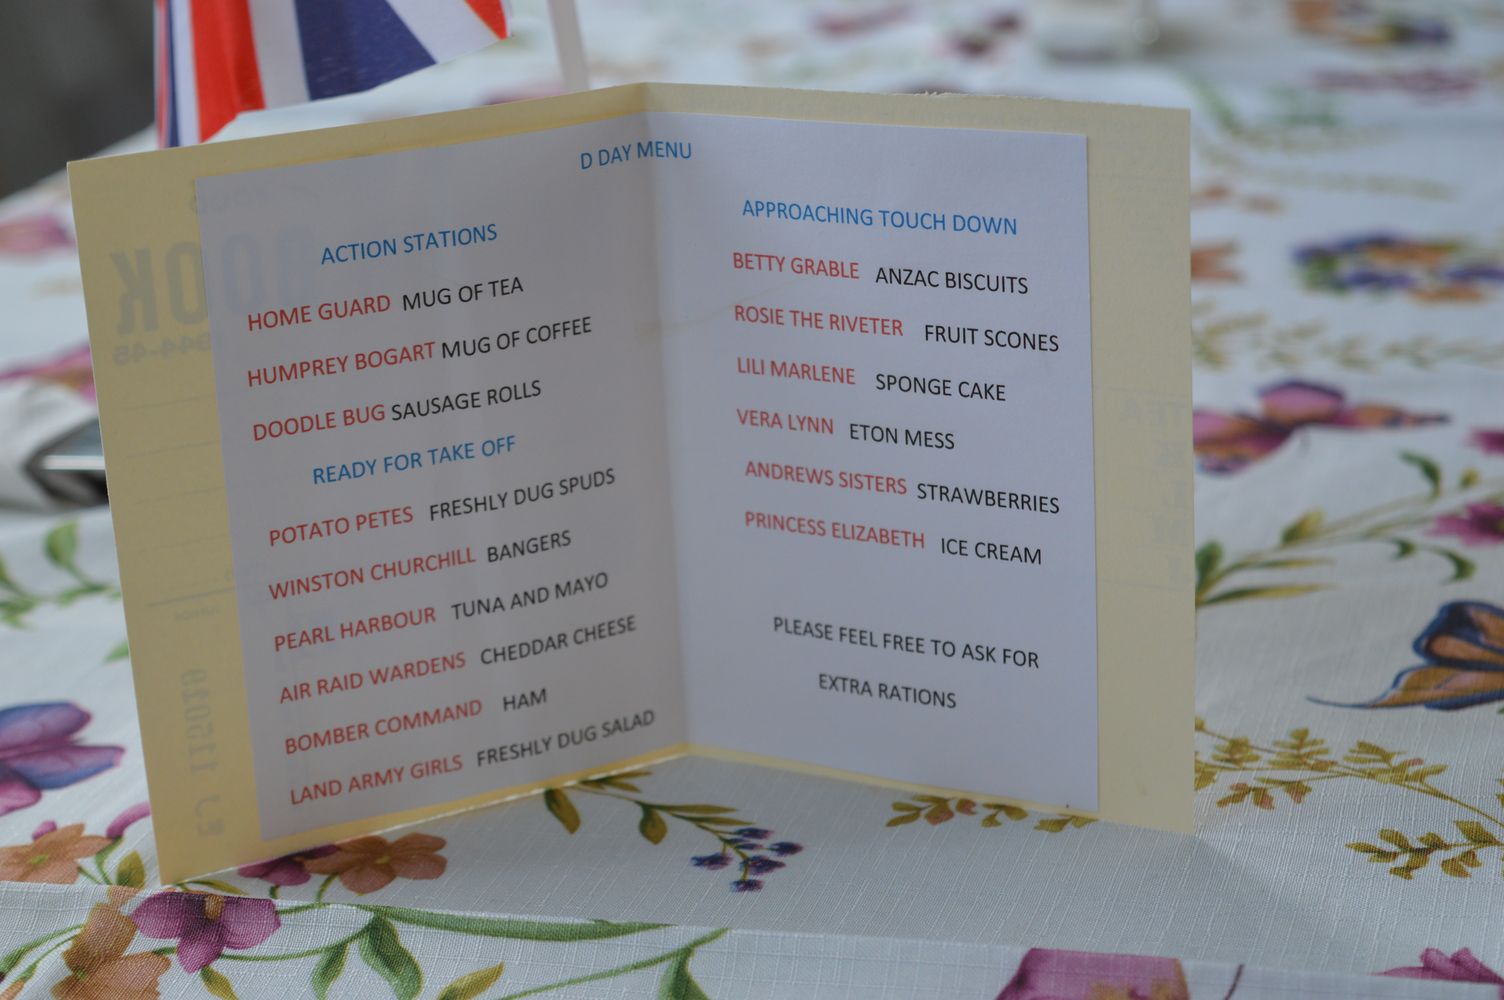 D DAY MENU
ACTION STATIONS
HOME GUARD MUG OF TEA
HUMPREY BOGART MUG OF COFFEE
DOODLE BUG SAUSAGE ROLLS
READY FOR TAKE OFF
POTATO PETES FRESHLY DUG SPUDS
WINSTON CHURCHILL BANGERS
PEARL HARBOUR TUNA AND MAYO
AIR RAID WARDENS CHEDDAR CHEESE
BOMBER COMMAND HAM
LAND ARMY GIRLS FRESHLY DUG SALAD
APPROACHING TOUCH DOWN
BETTY GRABLE ANZAC BISCUITS
ROSIE THE RIVETER FRUIT SCONES
LILI MARLENE SPONGE CAKE
VERA LYNN ETON MESS
ANDREWS SISTERS STRAWBERRIES
PRINCESS ELIZABETH ICE CREAM
PLEASE FEEL FREE TO ASK FOR
EXTRA RATIONS